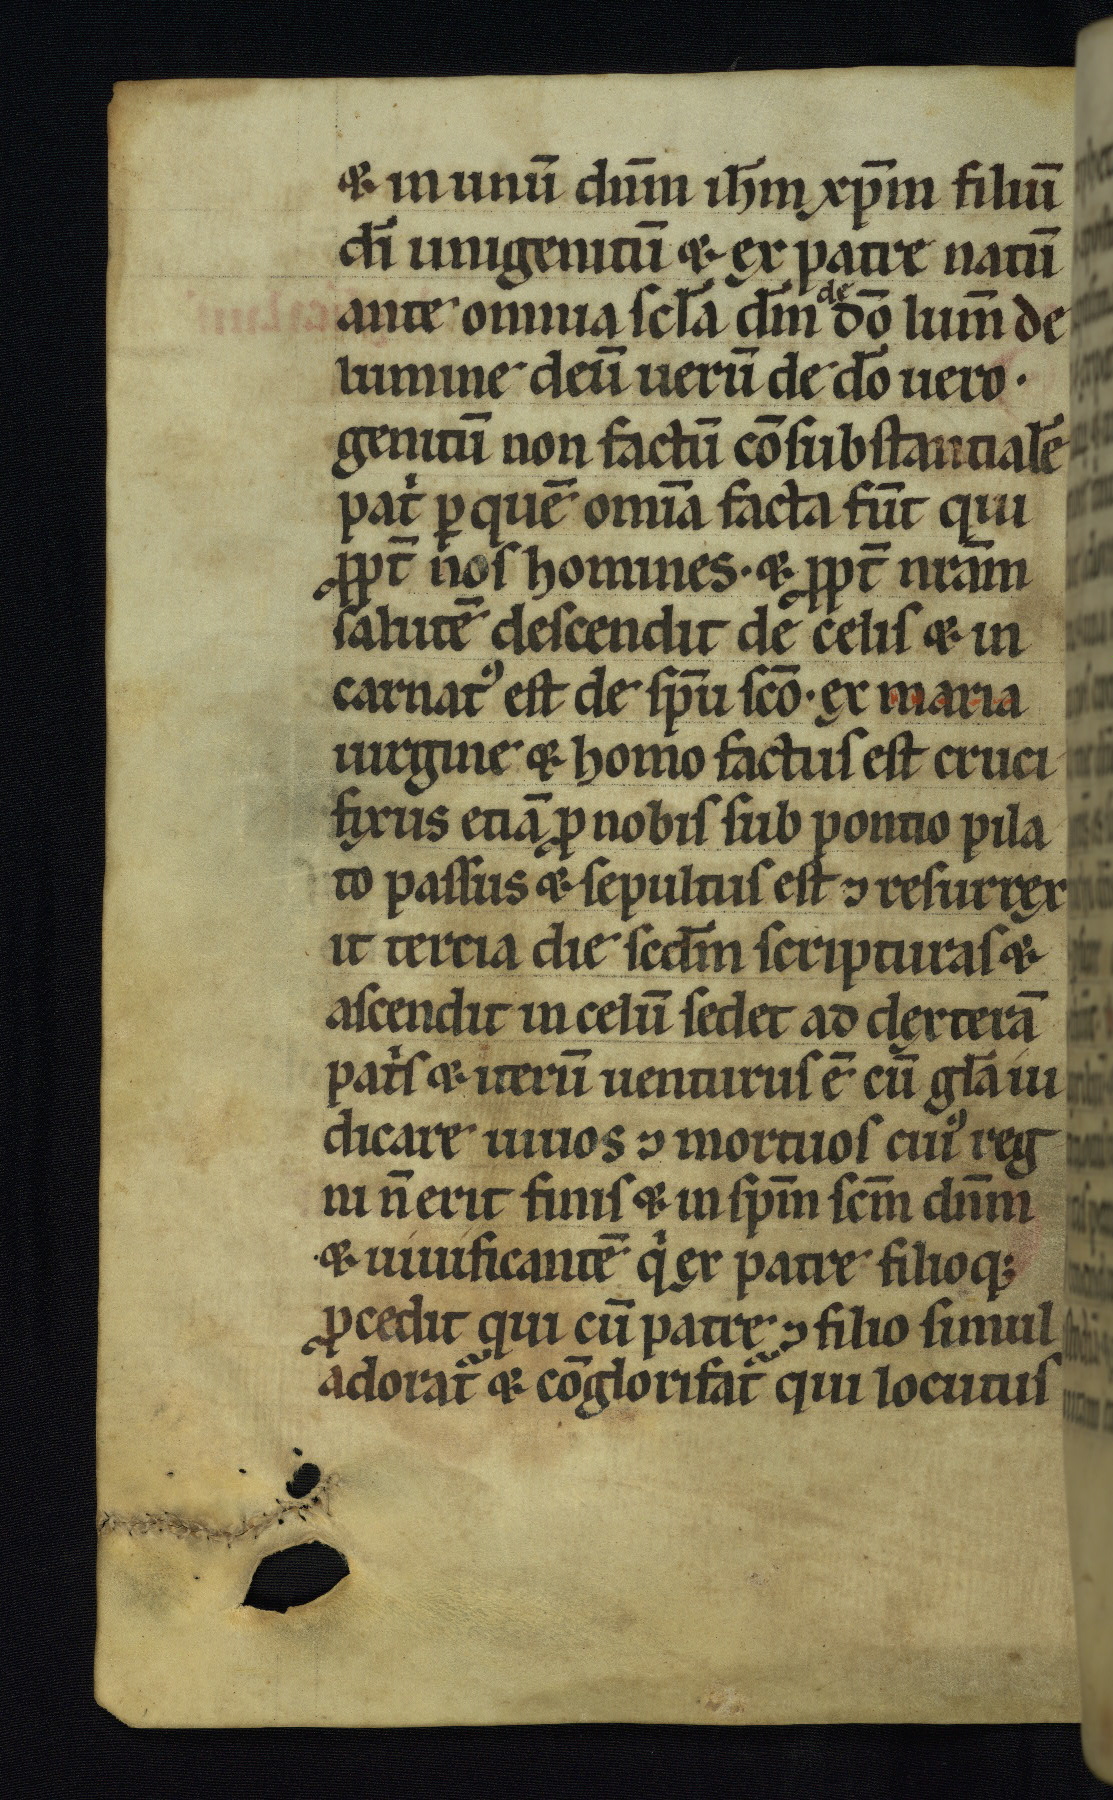 ⁊ in unū dn̄m ih̄m xp̄m filiū
dī unigenitū ⁊ ex patre natū
ante omnia scl̄a dm̄ de dō lum̄ de
lumine deū uerū de dō uero ·
genitū non factū cōsubstantialē
pat͛ ꝑ quē omīa facta sūt qui
ꝓpt̄ nos homines · ⁊ ꝓpt̄ nrām
salutē descendit de celis ⁊ in
carnatꝰ est de sp̄u scō · ex maria
uirgine ⁊ homo factus est cruci
fixus etiā ꝓ nobis sub pontio pila
to passus ⁊ sepultus est ⁊ resurrex
it tercia die scd̄m scripturas ⁊
ascendit in celū sedet ad dexterā
pat͛s ⁊ iterū uenturus ē cū gl̄a iu
dicare uiuos ⁊ mortuos cuiꝰ reg
ni n̄ erit finis ⁊ in sp̄m scm̄ dn̄m
· ⁊ uiuificantē qͥ ex patre filioq;
ꝓcedit qui cū patre ⁊ filio simul
adorat᷑ ⁊ cōglorifat᷑ qui locutus